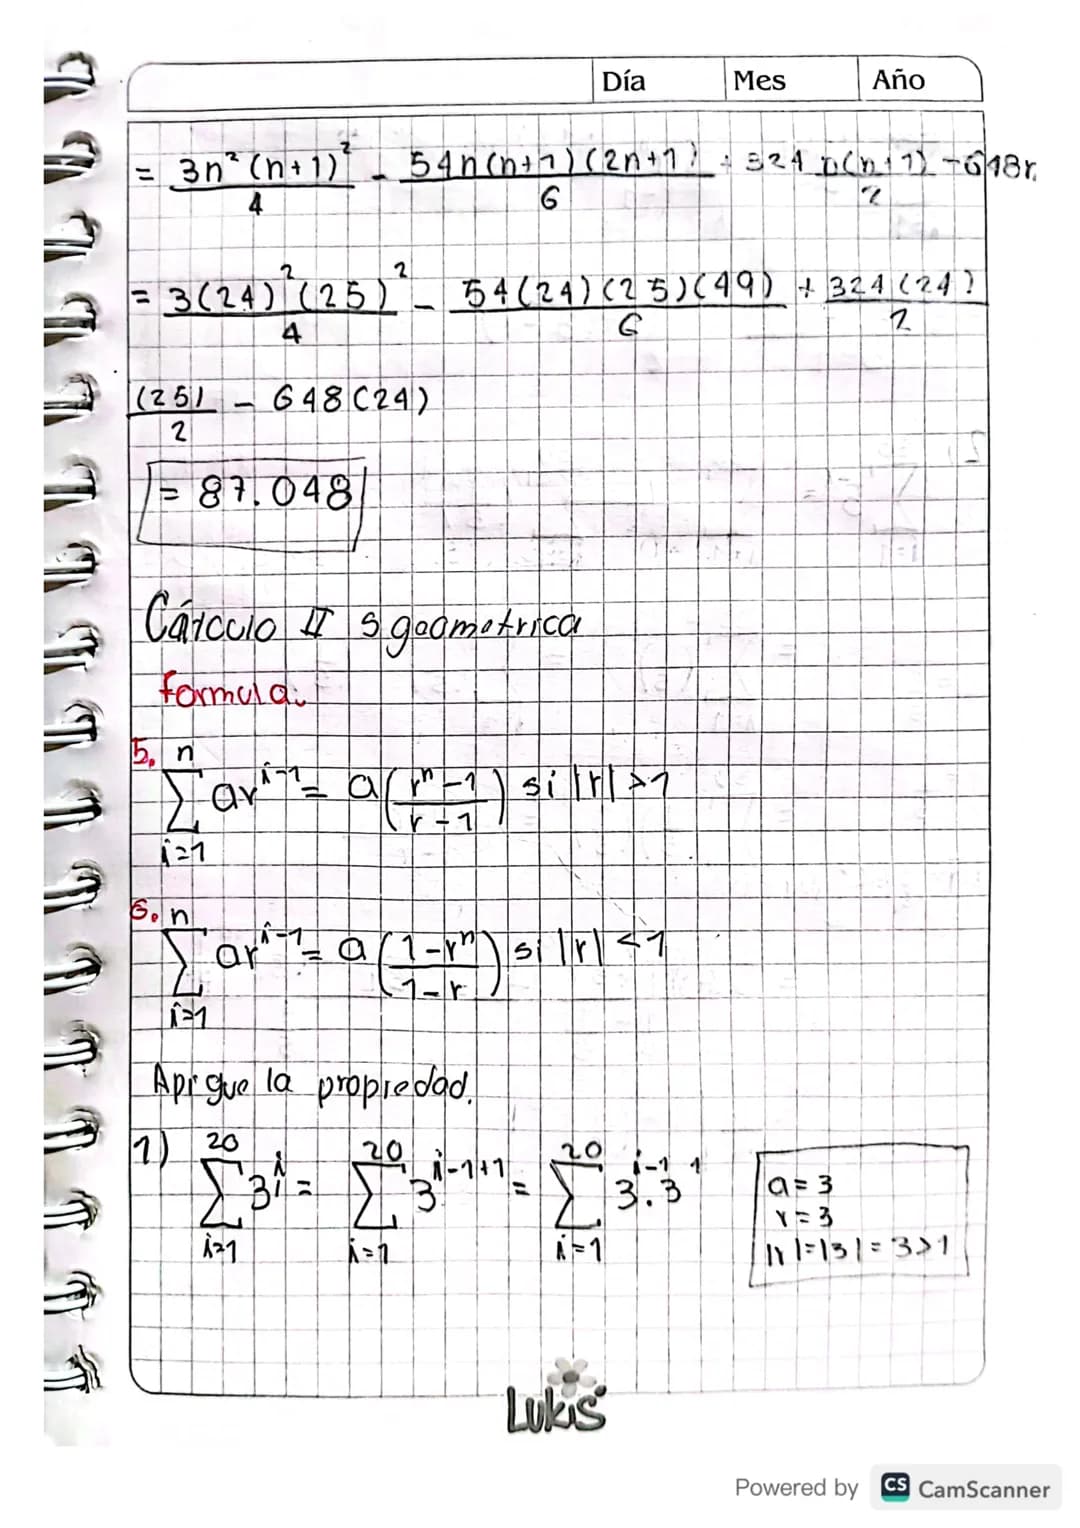 Día Mes Año
= 3n²(n+1)²/4 - 54n(n+1)(2n+1)/6 + 324 n(n+1)/2 - 648n
= 3(24)²(25)²/4 - 54(24)(25)(49)/6 + 324(24)/2
(25)/2 - 648(24)
= 87.048
Cálculo II s geometrica
formula:
5. n∑i=1 ar^i-1 = a(r^n-1/r-1) si |r|>1
6. n∑i=1 ar^i-1 = a(1-r^n/1-r) si |r|<1
Aplique la propiedad.
1) 20∑i=1 3^i = 20∑i=1 3^i-1+1 = 20∑i=1 3^i-1.3^1
a=3
r=3
|r|=|3|=3>1
Lukis
Powered by CS CamScanner